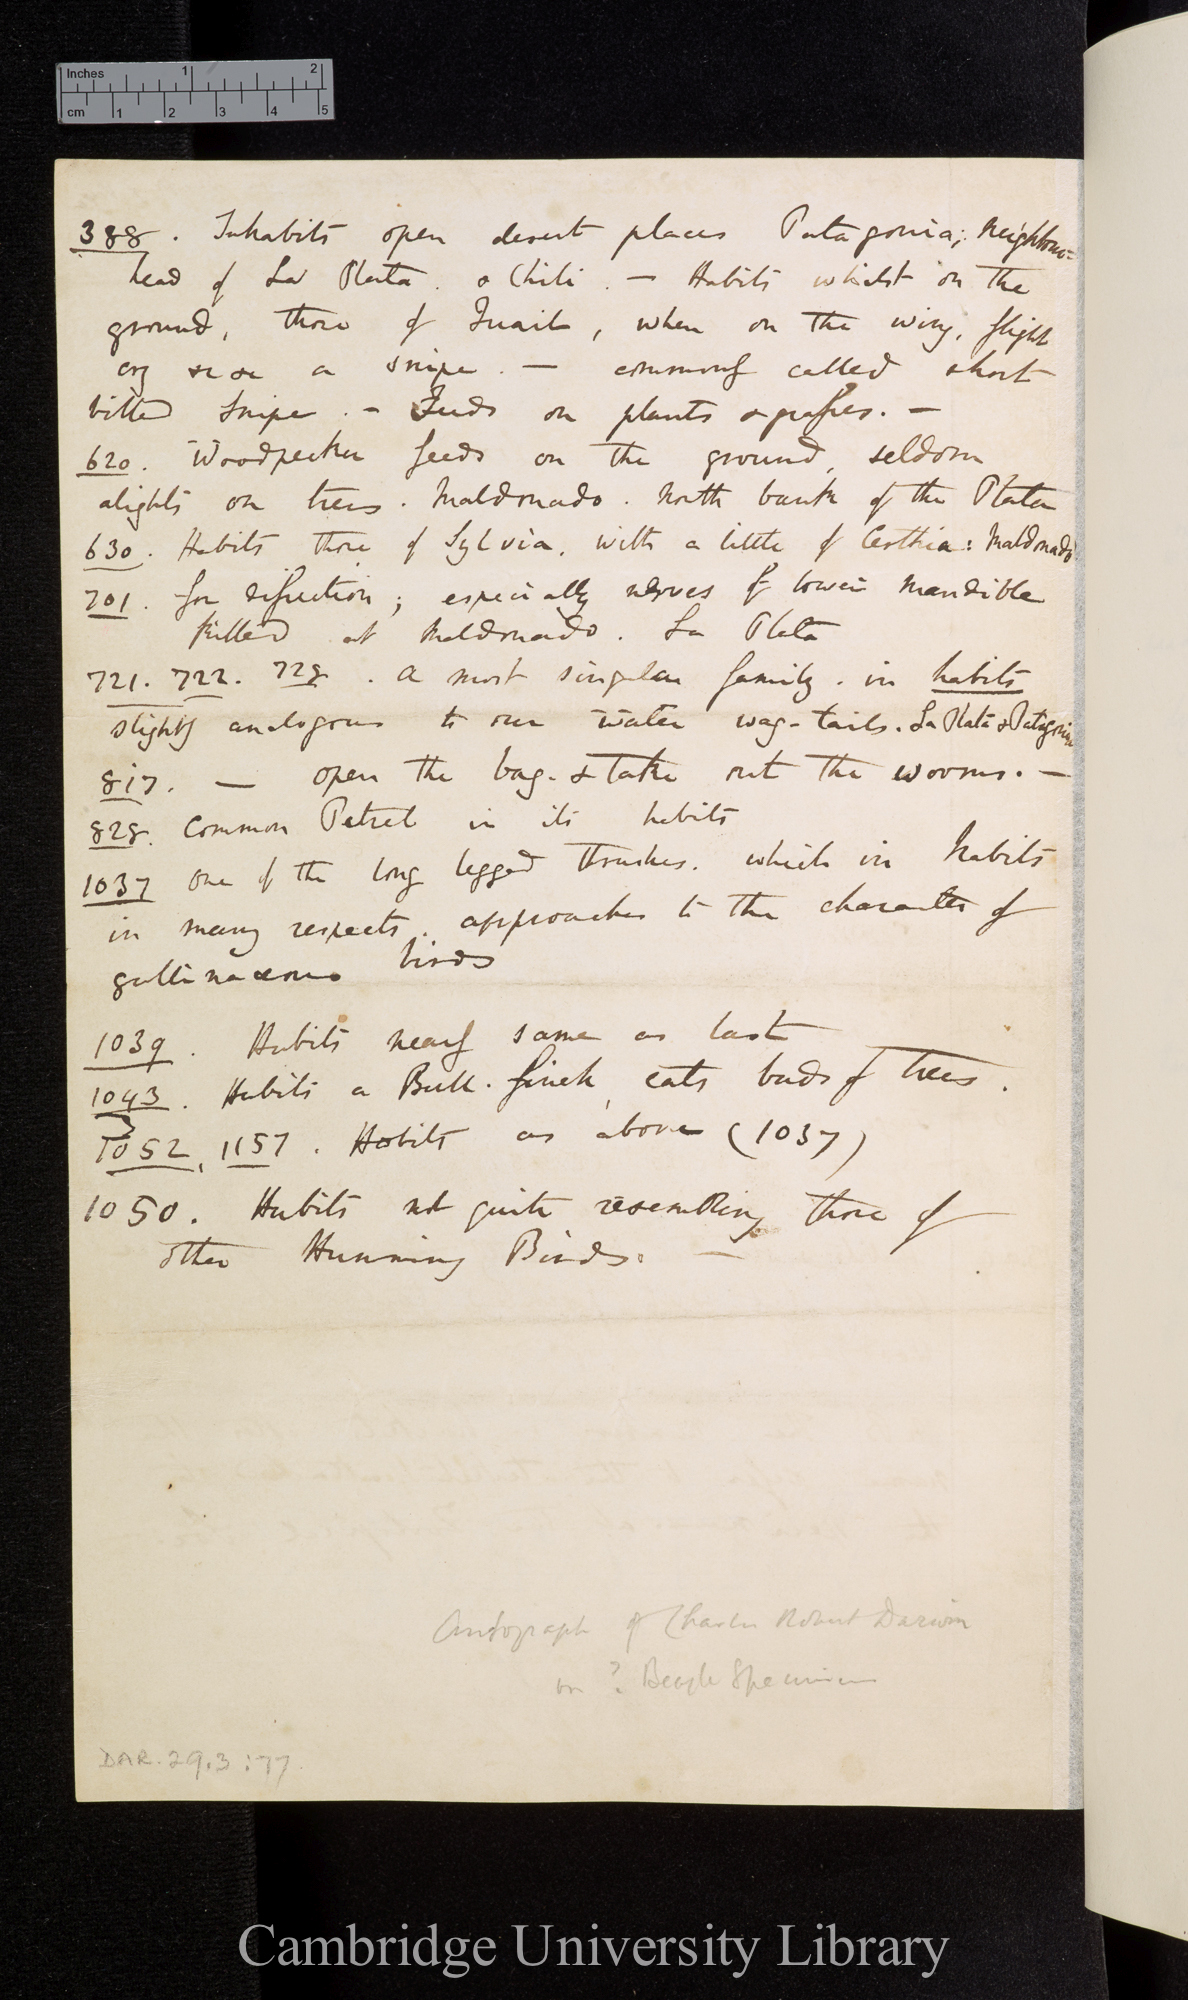 Inches 1 2
cm 1 2 3 4 5
388. Inhabits open desert places Patagonia; neighbour=
head of La Plata. & Chili. — Habits whilst on the
ground, those of Quails, when on the wing, flight
cry rise a snipe. — commonly called short
billed Snipe. - Feeds on plants & grasses. —
620. Woodpecker feeds on the ground, seldom
alights on trees. Maldonado. North bank of the Plata
630. Habits those of Sylvia, with a little of Certhia: Maldonado
701. for dissection; especially nerves of lower mandible
killed at Maldonado. La Plata
721. 722. 728. A most singular family. in habits
slightly analogous to our water wag-tails. La Plata & Patagonia
817. — open the bag. & take out the worms. —
828. Common Petrel in its habits
1037 One of the long legged thrushes. which in habits
in many respects. approaches to the character of
gallinaceous birds
1039. Habits nearly same as last
1043. Habits a Bull-finch, eats buds of trees.
1052, 1157. Habits as above (1037)
1050. Habits not quite resembling those of
other Humming Birds. —
Autograph of Charles Robert Darwin
on ? Beagle Specimens
DAR.29.3:77
Cambridge University Library